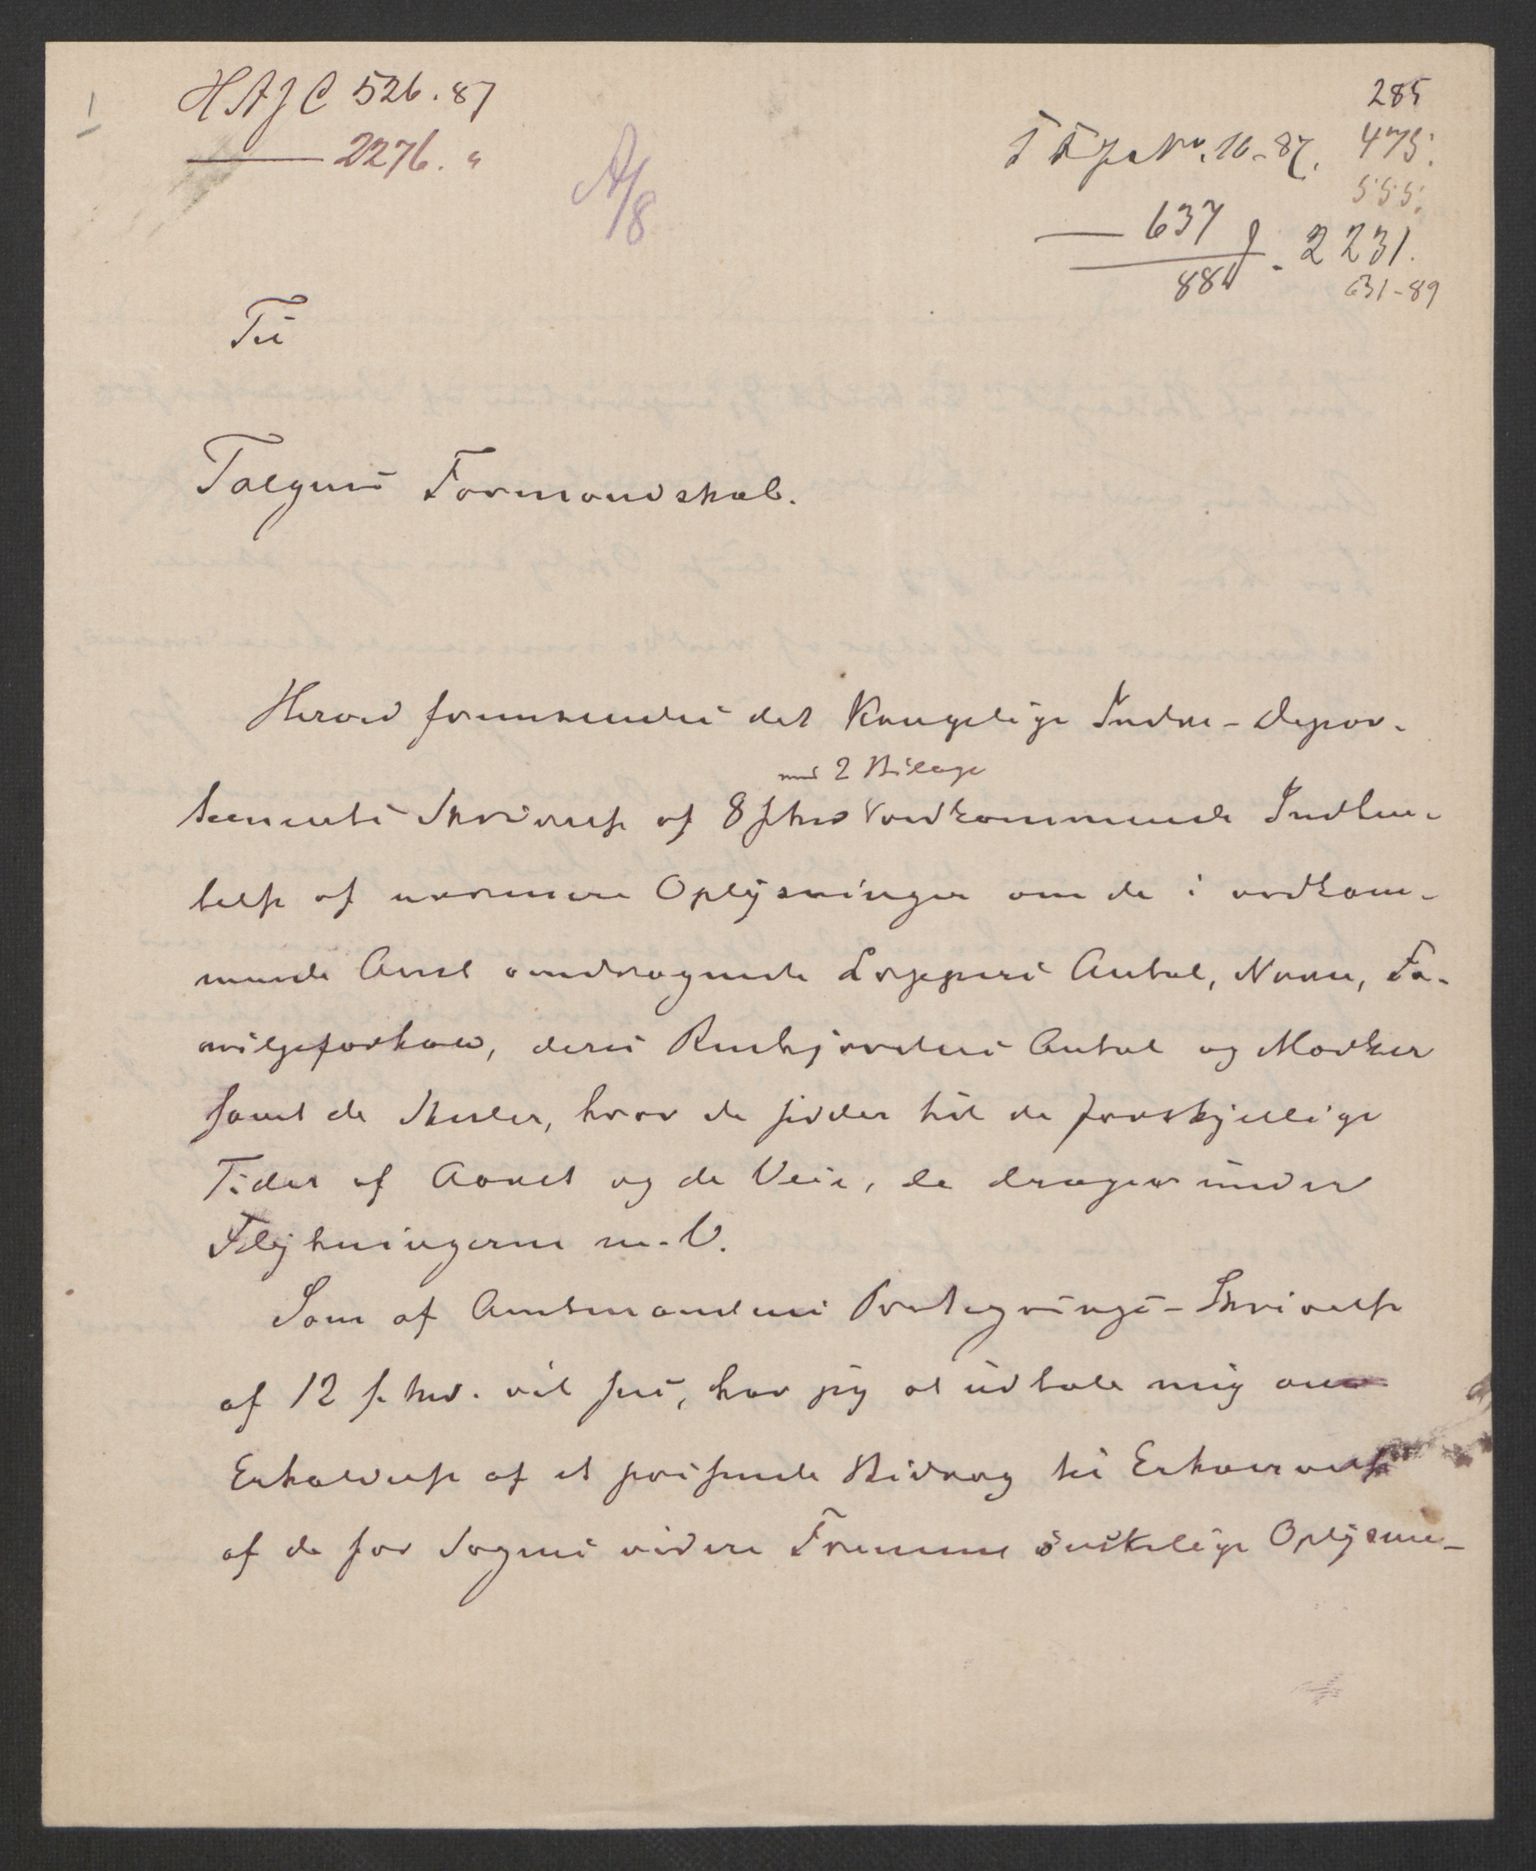 HAJC 526.87
2276. "
A/8
285
No. 16-87. 475.
555.
637
2231.
88
631-89
Til
Tolgens Formandskab.
Herved fremsendes det Kongelige Indre-Depar-
tements Skrivelse af 8 f. Md. vedkommende Indhen-
med 2 Bilage
telse af nærmere Oplysninger om de i vedkom-
mende Amt omdragende Lappers Antal, Navn, Fa-
miljeforhold, deres Renhjordens Antal og Mærker
samt de Steder, hvor de sidder til de forskjellige
Tider af Aaret og de Veie, de drager under
Flytningerne m. V.
Som af Amtmandens Paategnings-Skrivelse
af 12 f. Md. vil sees, har jeg at udtale mig om
Erholdelse af et passende Bidrag til Erhvervelse
af de for Sagens videre Fremme ønskelige Oplysnin-